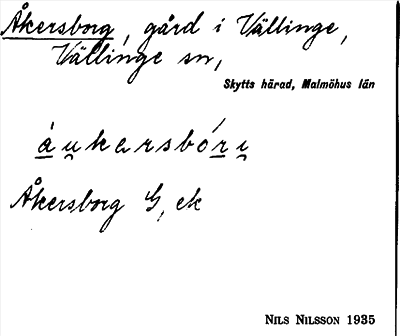 Åkersborg, gård i Vällinge,
Vällinge sn,
Skytts härad, Malmöhus län
àukersbóri
Åkersborg G, ek
NILS NILSSON 1935